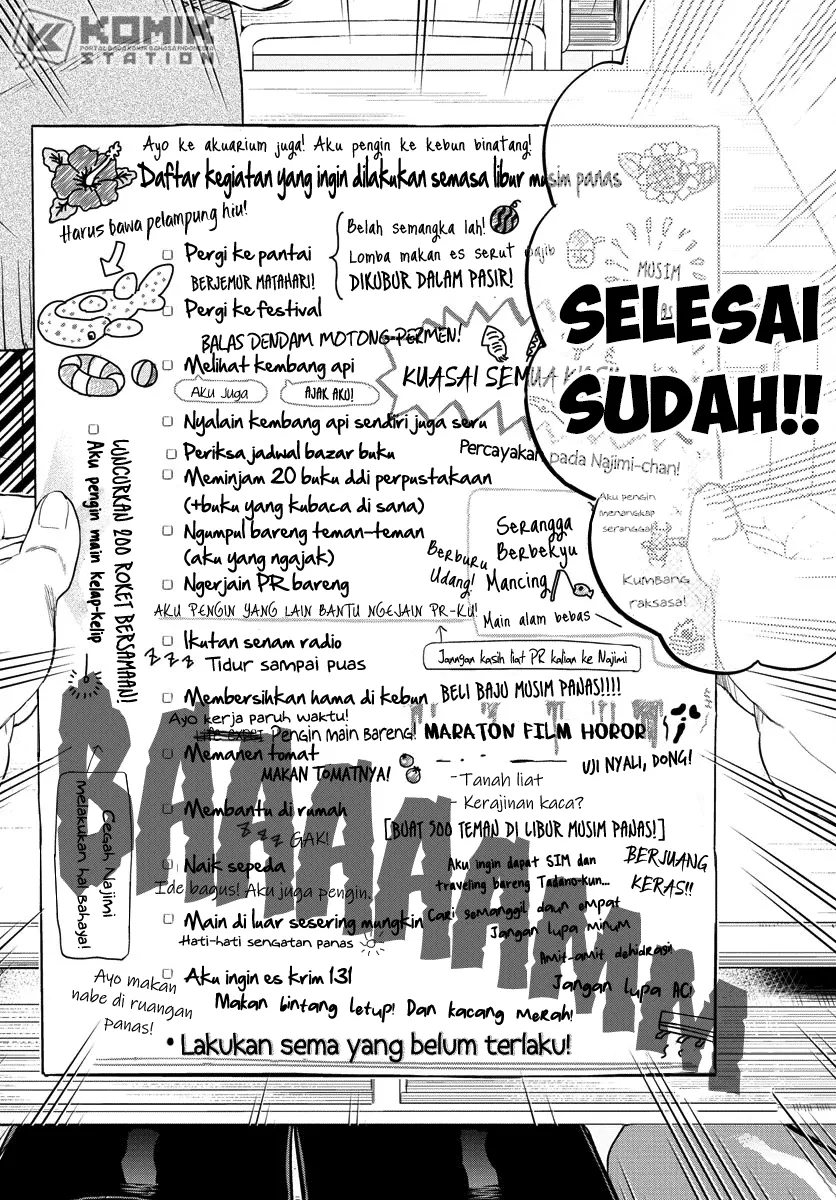 KOMIK
STATION
PORTAL BACA KOMIK BAHASA INDONESIA
SELESAI
SUDAH!!
Ayo ke akuarium juga! Aku pengin ke kebun binatang!
Daftar kegiatan yang ingin dilakukan semasa libur musim panas
Harus bawa pelampung hiu!
Pergi ke pantai
BERJEMUR MATAHARI!
Belah semangka lah!
Lomba makan es serut wajib
DIKUBUR DALAM PASIR!
MUSIM
Pergi ke festival
BALAS DENDAM MOTONG PERMEN!
Melihat kembang api
Aku juga
AJAK AKU!
KUASAI SEMUA
Nyalain kembang api sendiri juga seru
Periksa jadwal bazar buku
Percayakan pada Najimi-chan!
Meminjam 20 buku ddi perpustakaan
(+buku yang kubaca di sana)
Ngumpul bareng teman-teman
(aku yang ngajak)
Serangga
Berbekyu
Mancing
Berburu
Udang!
Main alam bebas
Aku pengin
menangkap
serangga!
Kumbang
raksasa!
Ngerjain PR bareng
AKU PENGIN YANG LAIN BANTU NGEJAIN PR-KU!
Janngan kasih liat PR kalian ke Najimi
LUNCURKAN 200 ROKET BERSAMAAN!
Aku pengin main kelap-kelip
Ikutan senam radio
z z z Tidur sampai puas
Membersihkan hama di kebun
BELI BAJU MUSIM PANAS!!!!
Ayo kerja paruh waktu!
Pengin main bareng!
MARATON FILM HOROR
UJI NYALI, DONG!
Memanen tomat
MAKAN TOMATNYA!
- Tanah liat
- Kerajinan kaca?
Membantu di rumah
z z z GAK!
[BUAT 500 TEMAN DI LIBUR MUSIM PANAS!]
Cegah Najimi
melakukan hal bahaya!
Naik sepeda
Ide bagus! Aku juga pengin.
Aku ingin dapat SIM dan
traveling bareng Tadano-kun...
BERJUANG
KERAS!!
Main di luar sesering mungkin
Hati-hati sengatan panas
Cari semanggil daun empat
Jangan lupa minum
Amit-amit dehidrasi!
Jangan lupa AC!
Aku ingin es krim 131
Makan bintang letup! Dan kacang merah!
Ayo makan
nabe di ruangan
panas!
• Lakukan sema yang belum terlaku!